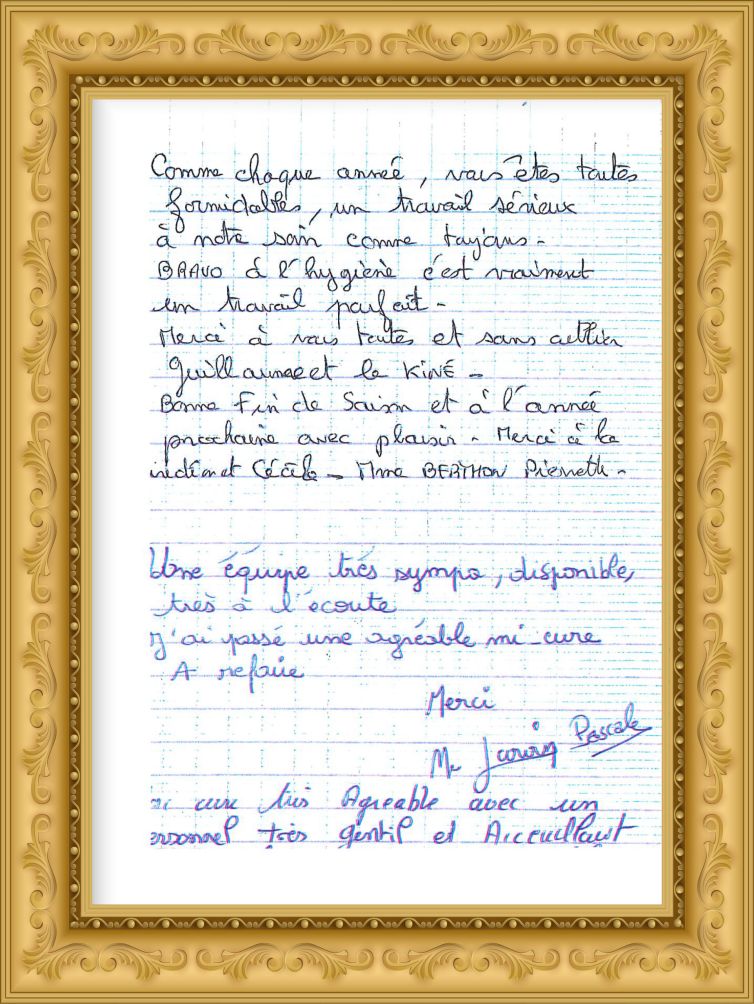 Comme chaque année, vous êtes toutes
formidables, un travail sérieux
à notre soin comme toujours -
BRAVO à l'hygiène c'est vraiment
un travail parfait -
Merci à vous toutes et sans oublier
Guillaume et le KINÉ -
Bonne Fin de Saison et à l'année
prochaine avec plaisir - Merci à la
Cécile - Mme BERTHON Pierrette -
Une équipe très sympa, disponible,
très à l'écoute
J'ai passé une agréable mi-cure
A refaire
Merci
Pascale
cure très Agréable avec un
ersonnel très gentil et Accueillant